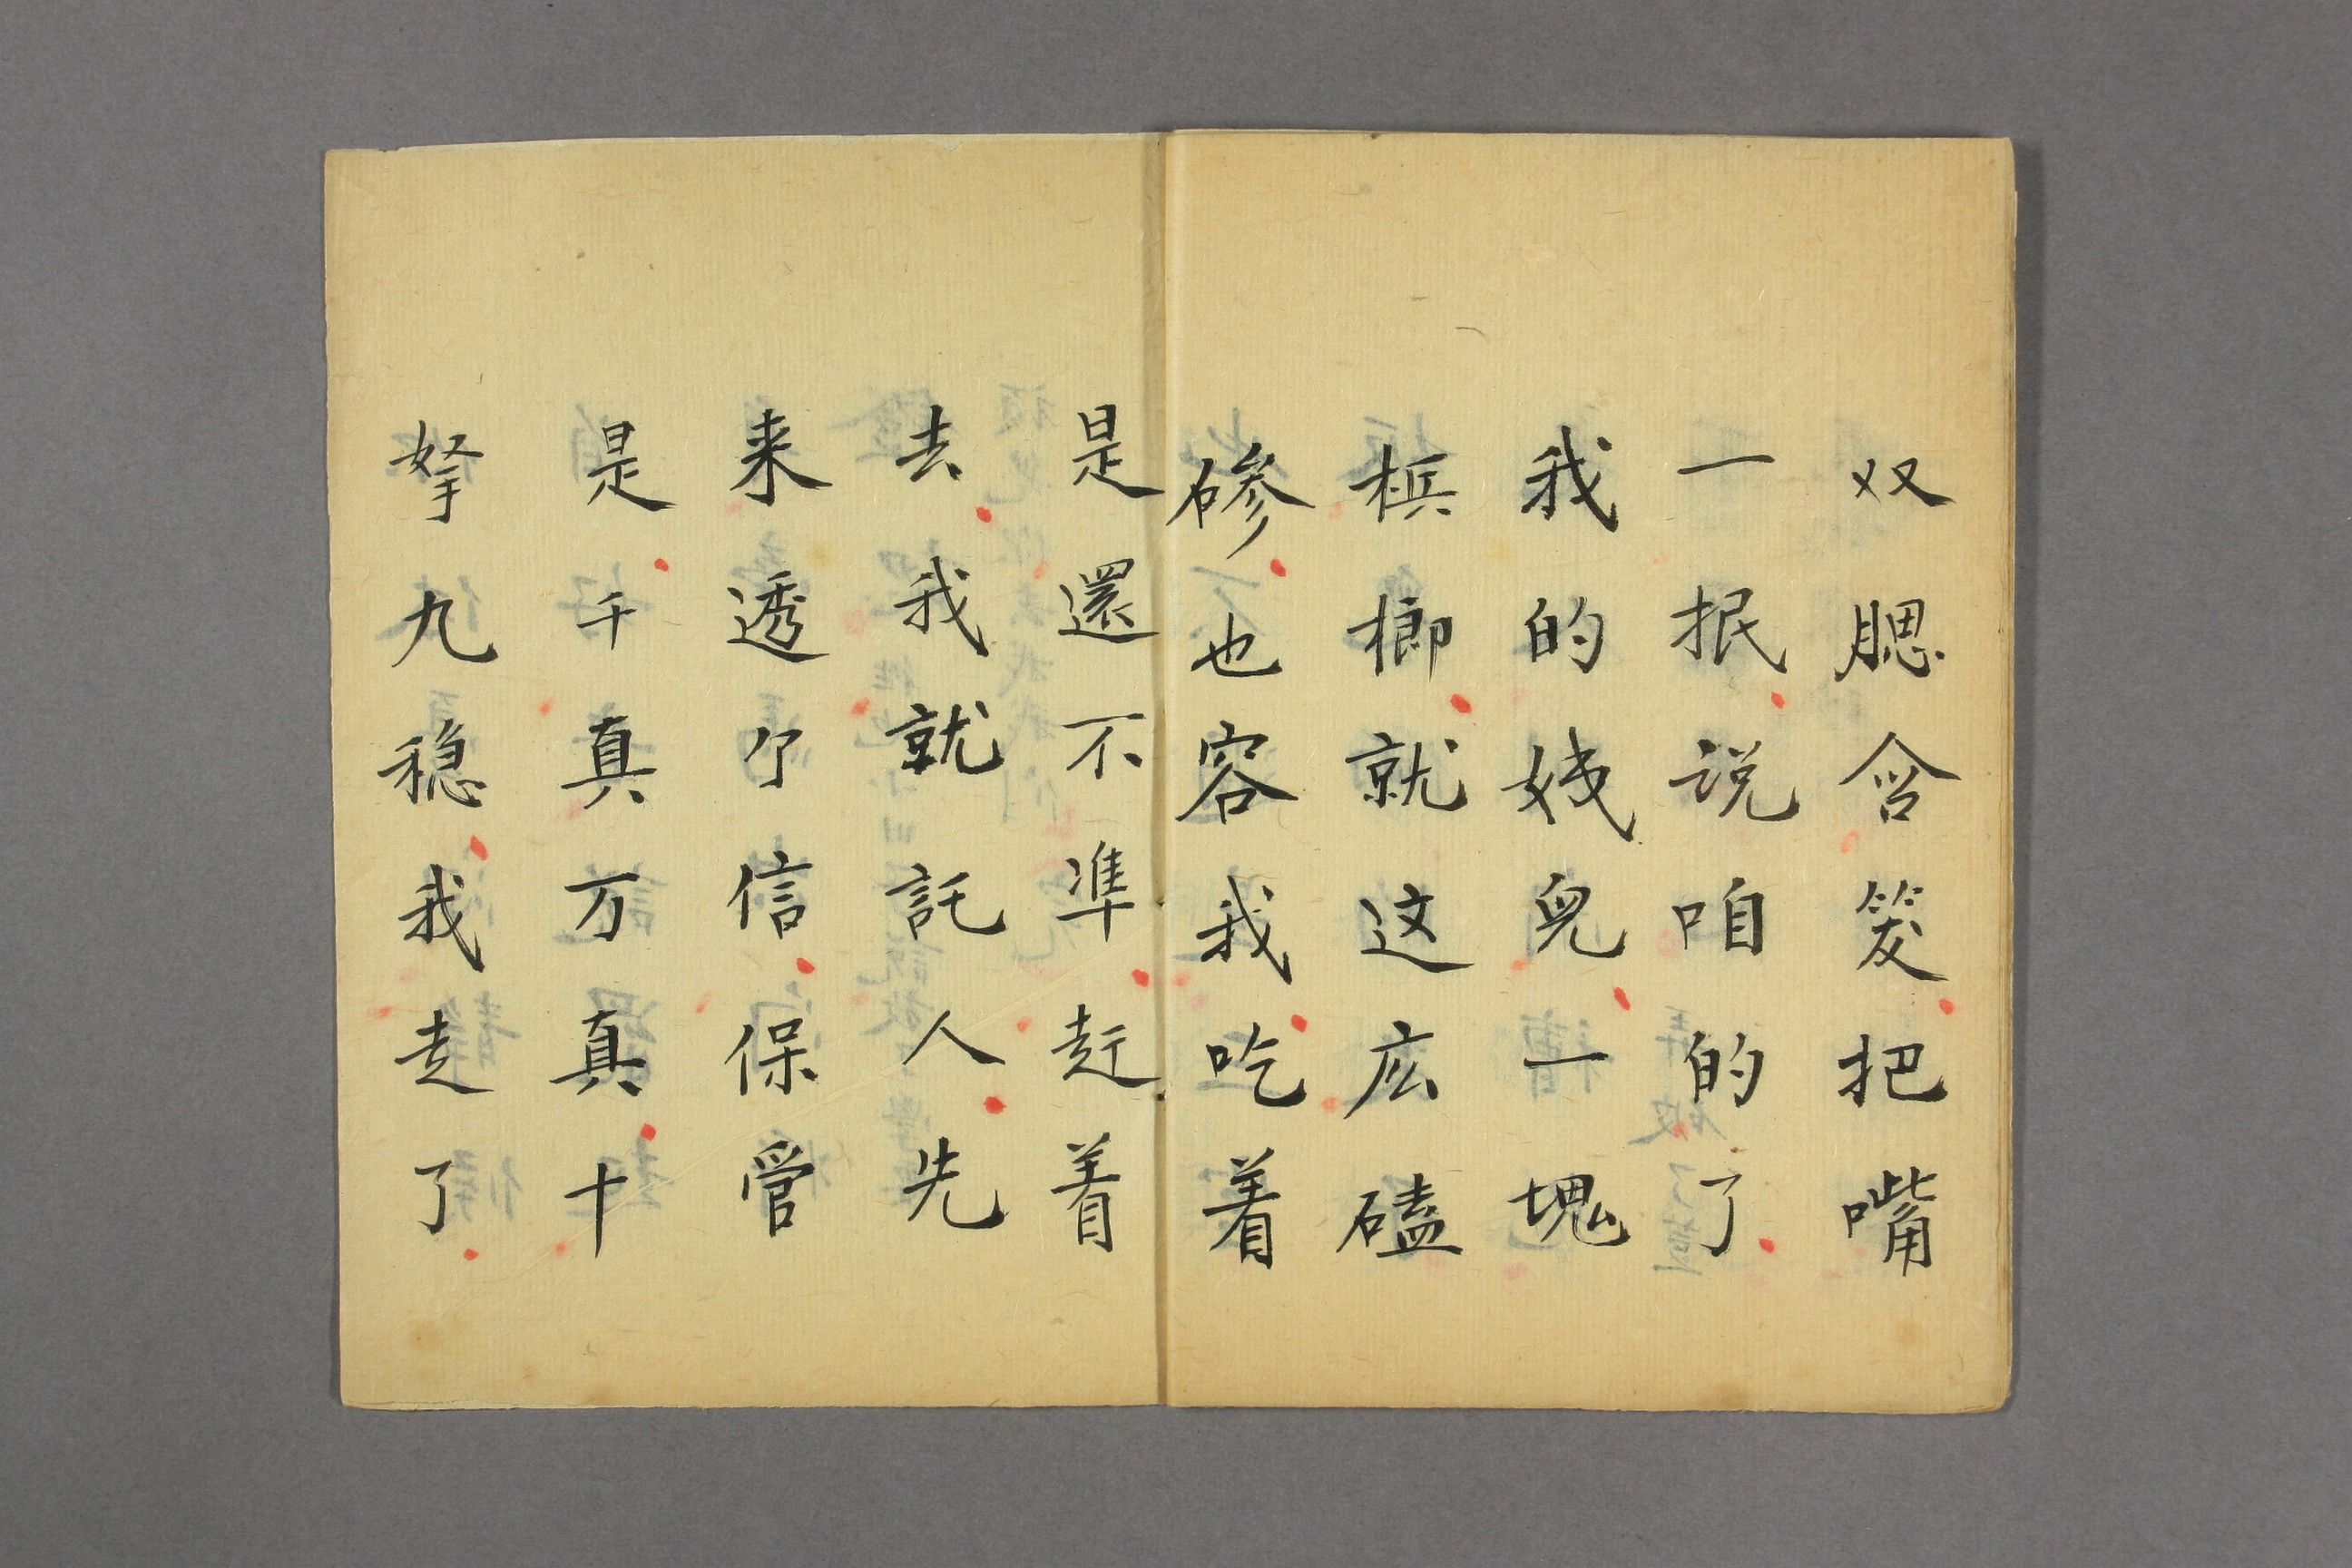 双腮含笑把嘴
一抿说咱的了
我的姨兒一塊
槟榔就这広磕
磣也容我吃着
是還不準赶着
去我就託人先
来透个信保管
是千真万真十
拏九稳我走了